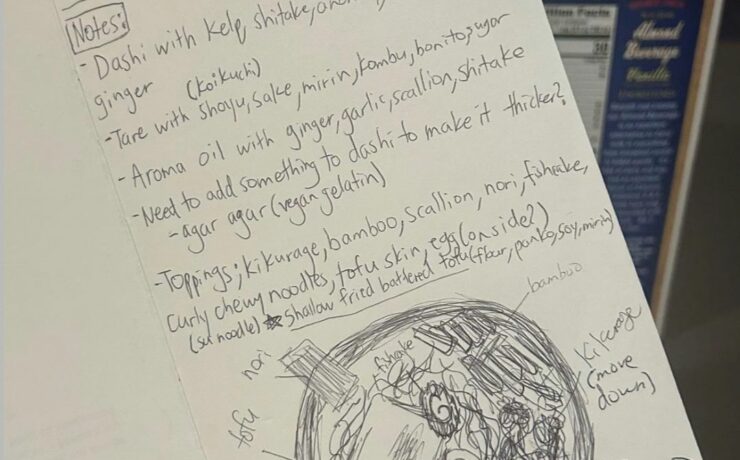 Notes:
- Dashi with kelp, shitake,
ginger
(Koikuchi)
- Tare with shoyu, sake, mirin, kombu, bonito, sugar
- Aroma oil with ginger, garlic, scallion, shitake
- Need to add something to dashi to make it thicker?
- agar agar (vegan gelatin)
- Toppings; kikurage, bamboo, scallion, nori, fishcake,
curly chewy noodles, tofu skin, egg (on side?)
(sun noodle) ★ Shallow fried battered tofu (flour, panko, soy, mirin)
bamboo
nori
fishcake
kikurage
(move
down)
tofu
Nutrition Facts
30
Almond
Beverage
Vanilla